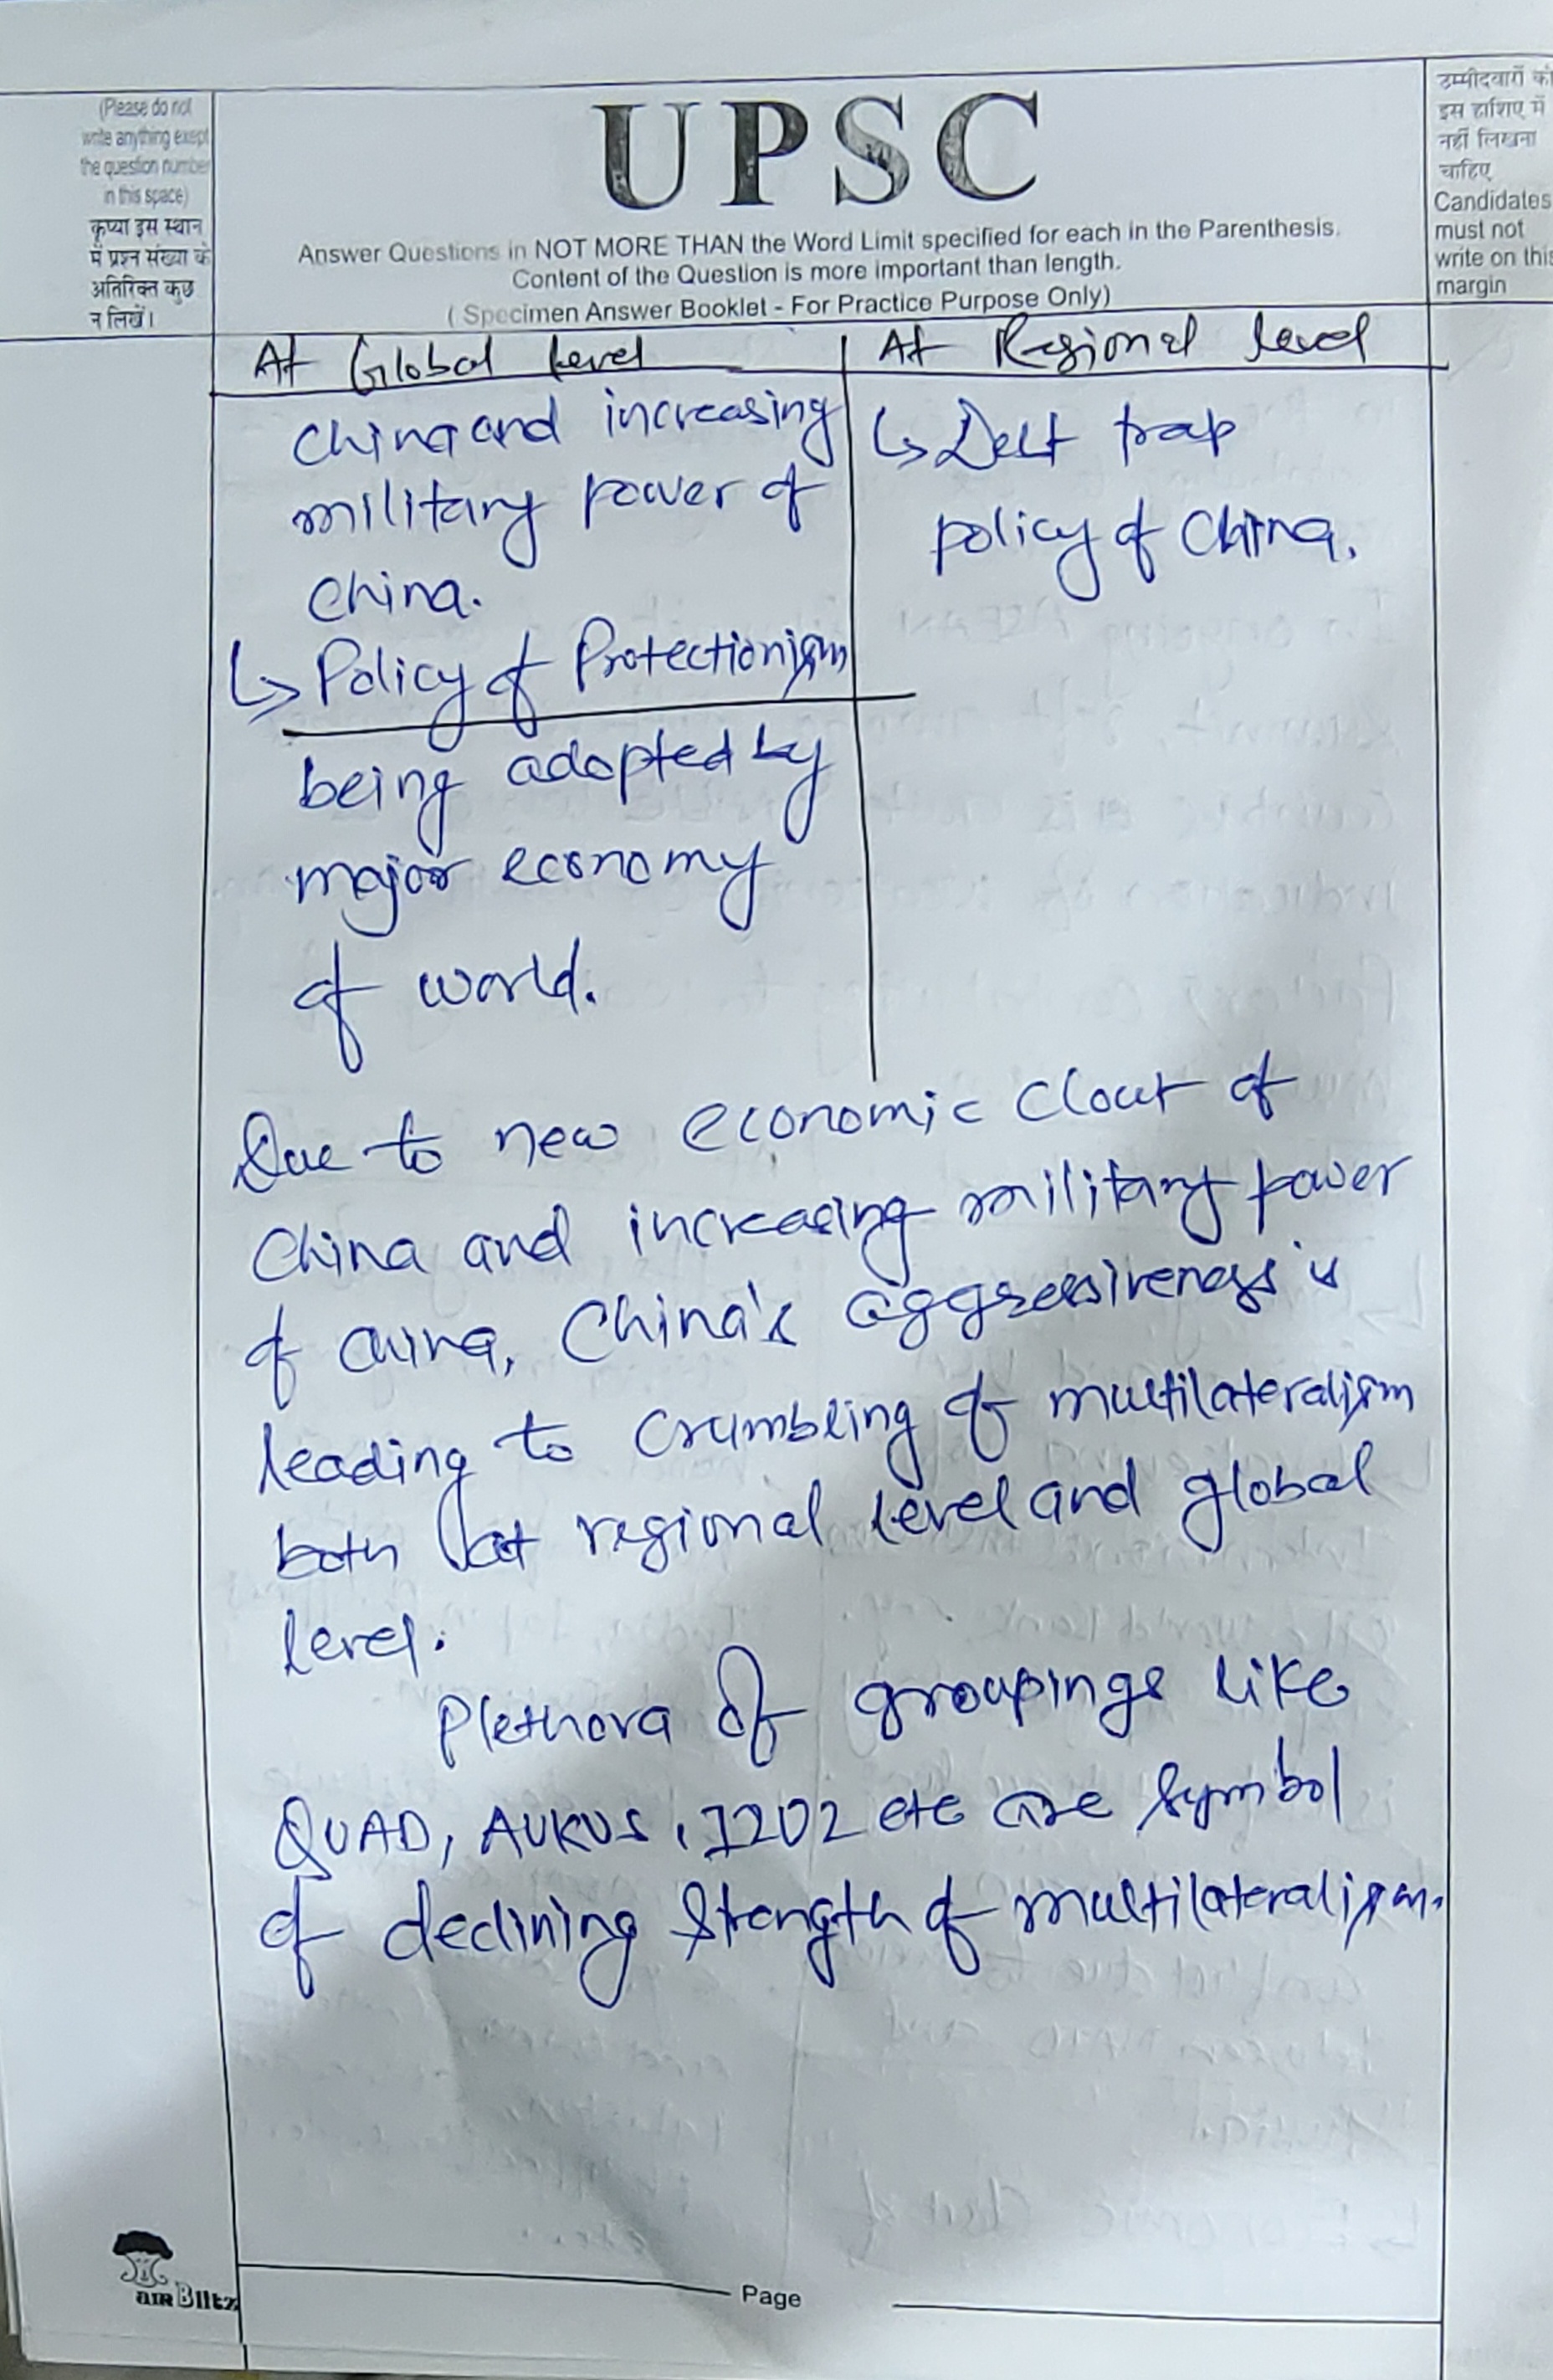 (Please do not
write anything exept
the question number
in this space)
कृप्या इस स्थान
में प्रश्न संख्या के
अतिरिक्त कुछ
न लिखें।
UPSC
Answer Questions in NOT MORE THAN the Word Limit specified for each in the Parenthesis.
Content of the Question is more important than length.
( Specimen Answer Booklet - For Practice Purpose Only)
उम्मीदवारों को
इस हाशिए में
नहीं लिखना
चाहिए
Candidates
must not
write on this
margin
At Global level
China and increasing
military power of
China.
↳ Policy of Protectionism
being adopted by
major economy
of world.
At Regional level
↳ Debt trap
policy of China.
Due to new economic clout of
China and increasing military power
of China, China's aggressiveness is
leading to crumbling of multilateralism
both at regional level and global
level.
Plethora of groupings like
QUAD, AUKUS, I2U2 etc are symbol
of declining strength of multilateralism.
Page